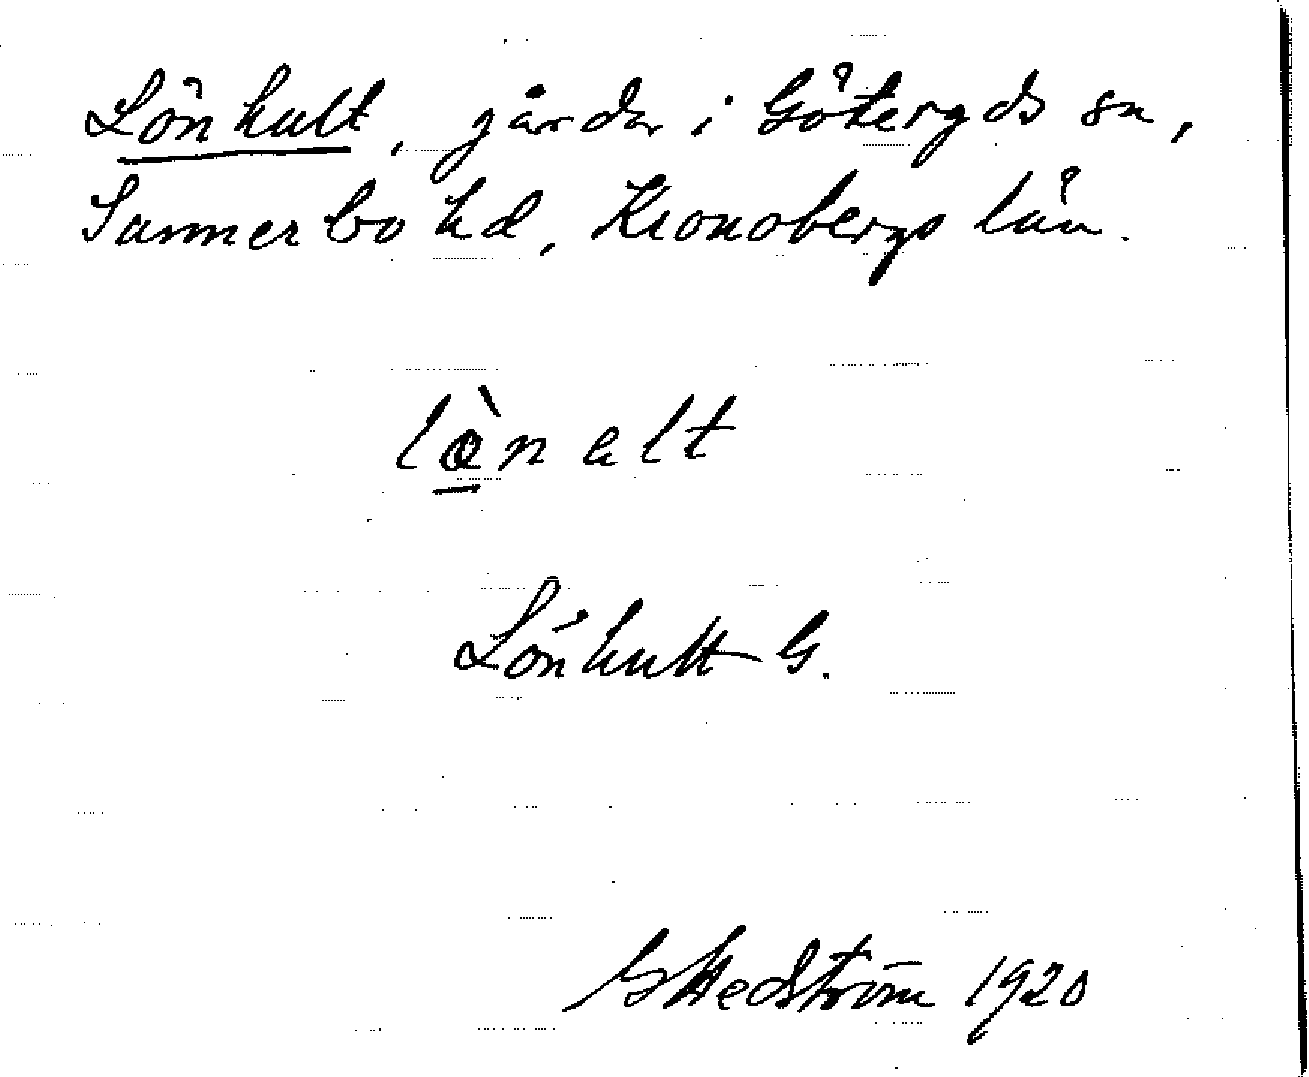 Lönhult, gårdar i Göteryds sn,
Sunnerbo hd, Kronobergs län.
lǫ̀nalt
Lönhult G.
G Hedström 1920